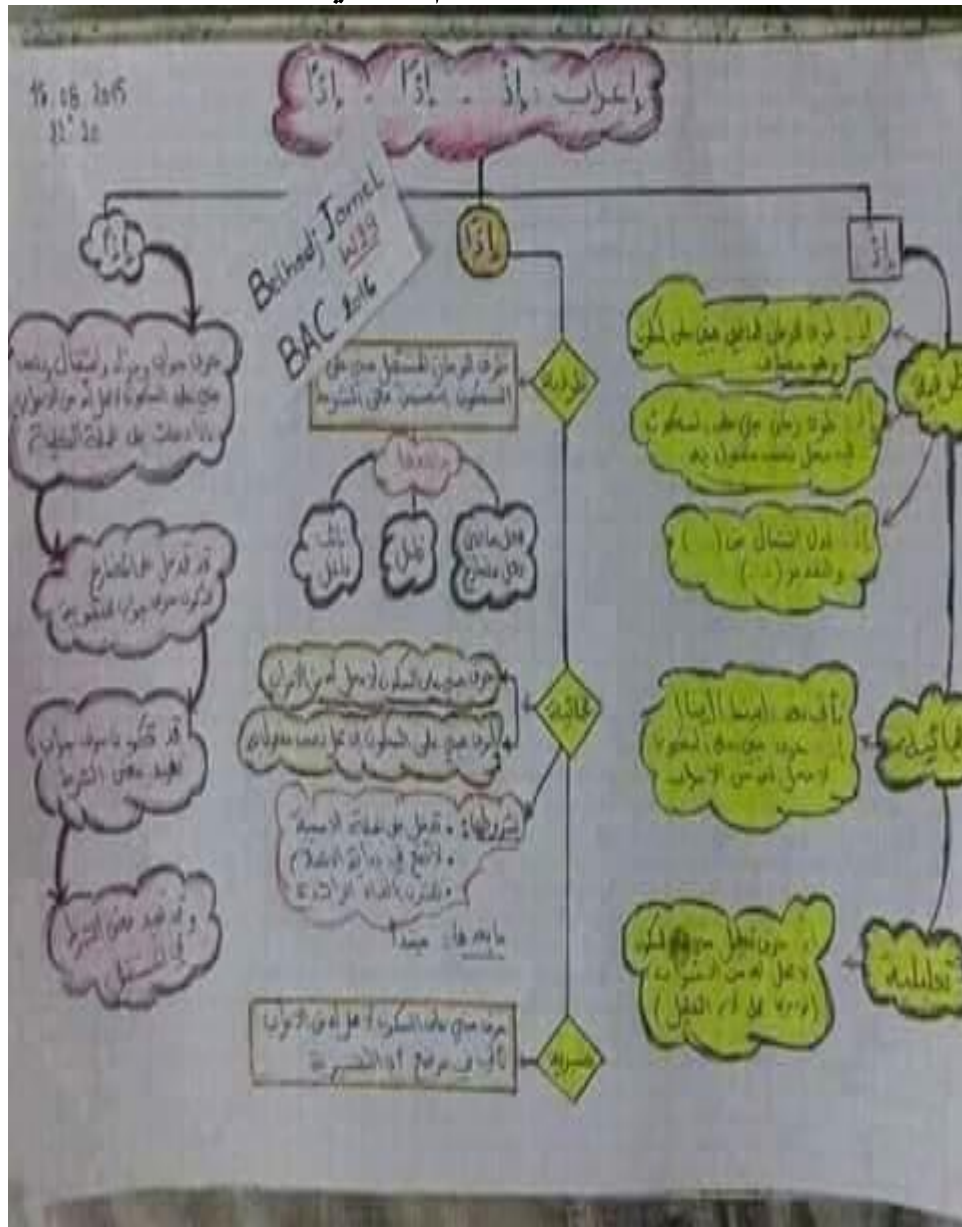 16.08.2015
22:20
إعراب: إذْ - إذَا - إذًا
Belhadj Jamel
W39
BAC 2016
إذْ
إذَا
إذًا
ظرفية
إذ: ظرف للزمان الماضي مبني على السكون
وهو مضاف
إذ: ظرف زمان مبني على السكون
في محل نصب مفعول به
إذ: بدل اشتمال من (...)
والتقدير (...)
فجائية
تأتي بعد
حرف مبني على السكون
لا محل له من الإعراب
تعليلية
إذ: حرف تعليل مبني على السكون
لا محل له من الإعراب
ظرفية
ظرف للزمان المستقبل مبني على
السكون يتضمن معنى الشرط
بعدها
فعل ماضي
فعل مضارع
فاعل
نائب
فاعل
فجائية
حرف مبني على السكون لا محل له من الإعراب
ظرف مبني على السكون في محل نصب مفعول فيه
شروطها: • تدخل على الجملة الاسمية
• لا تقع في بداية الكلام
• تقترن بالفاء الزائدة
ما بعدها: مبتدأ
تفسيرية
حرف مبني على السكون لا محل له من الإعراب
تأتي في موضع أي التفسيرية
حرف جواب وجزاء واستقبال ونصب
مبني على السكون لا محل له من الإعراب
إذا دخلت على الجملة الفعلية
قد تدخل على المضارع
فتكون حرف جواب
قد تكون حرف جواب
تفيد معنى الشرط
وقد تفيد معنى الشرط
في المستقبل